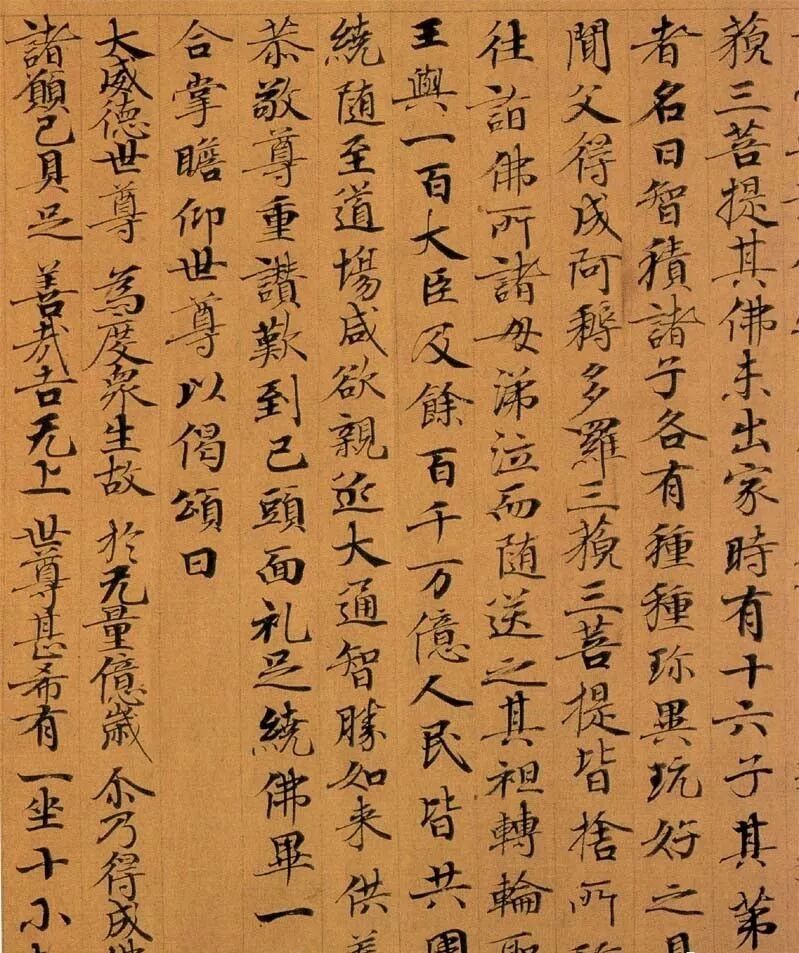 藐三菩提其佛未出家時有十六子其第
者名曰智積諸子各有種種珎異玩好之具
聞父得成阿耨多羅三藐三菩提皆捨所珎
往詣佛所諸母涕泣而随送之其祖轉輪聖
王與一百大臣及餘百千万億人民皆共圍
繞随至道場咸欲親近大通智勝如来供養
恭敬尊重讃歎到已頭面礼足繞佛畢一
合掌瞻仰世尊以偈頌曰
大威德世尊 為度衆生故 於无量億歳 尒乃得成佛
諸願已具足 善哉吉无上 世尊甚希有 一坐十小